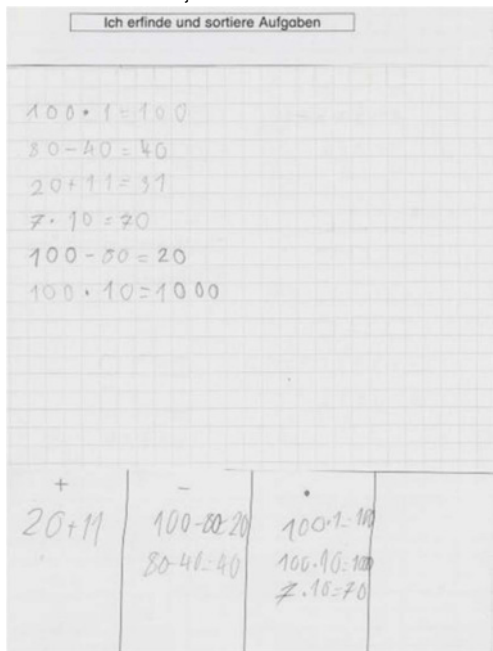 Ich erfinde und sortiere Aufgaben
100 · 1 = 100
80 - 40 = 40
20 + 11 = 31
7 · 10 = 70
100 - 80 = 20
100 · 10 = 1000
+ - ·
20+11 100-80=20 100·1=100
80-40=40 100·10=1000
7·10=70